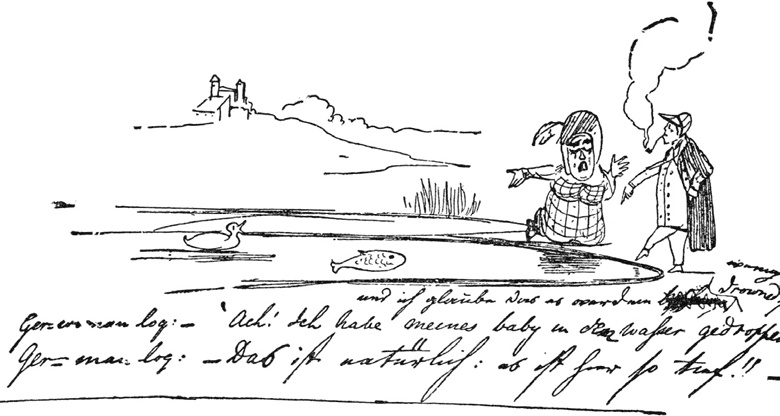 und ich glaube das es drowned
Ger=wo=man log:– 'Ach! Ich habe meines baby in dem wasser gedroppen
Ger=man log: – Das ist natürlich: es ist hier so tief!! –